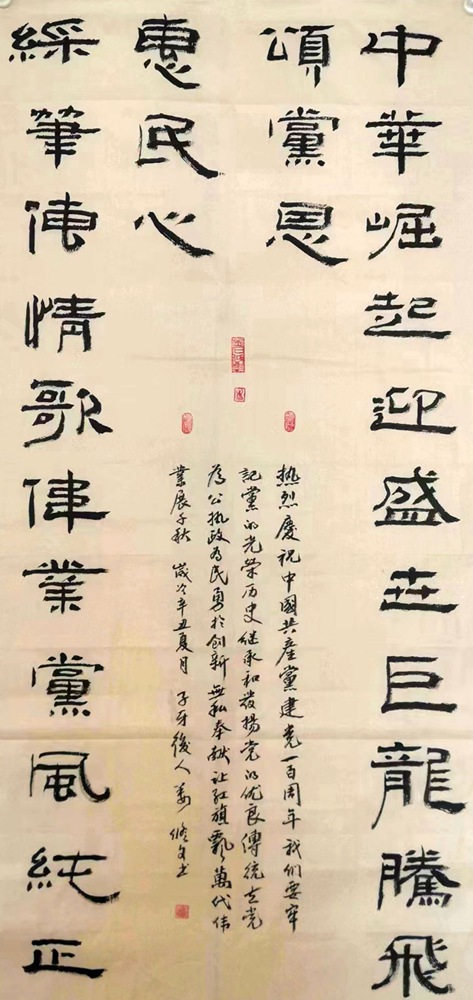 中華崛起迎盛世巨龍騰飛
頌黨恩
綵筆傳情歌偉業黨風純正
惠民心
热烈慶祝中國共產黨建党一百周年我们要牢
記黨的光荣历史继承和發揚党的优良傳統立党
為公执政为民勇於创新無私奉献让红旗飘萬代伟
業展千秋 歲次辛丑夏月 子牙後人姜脩文书